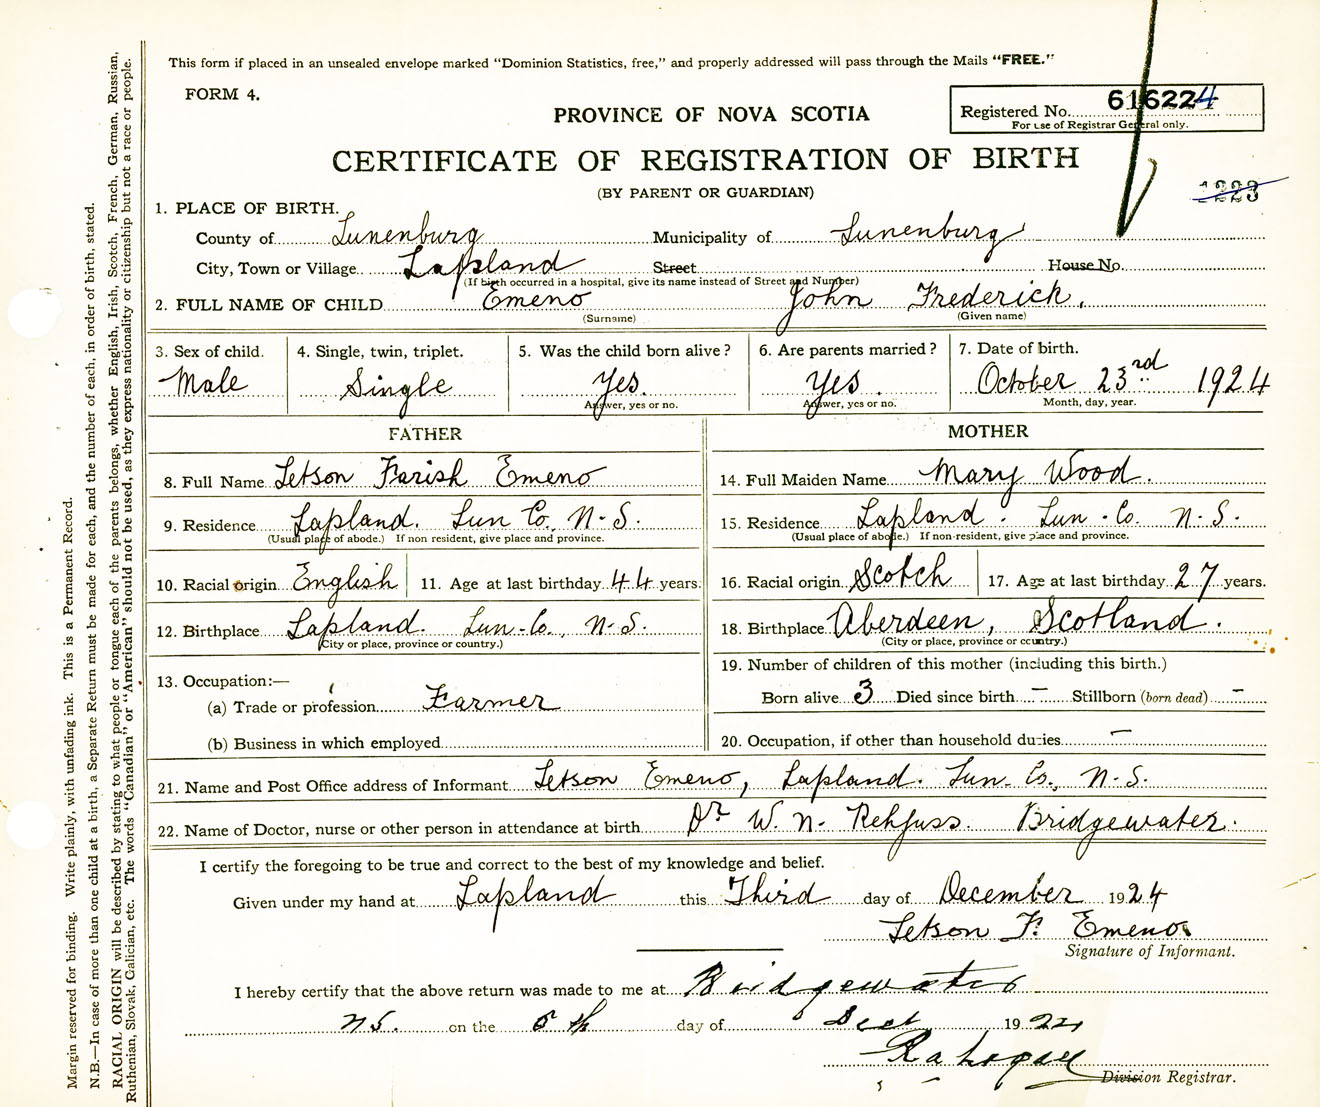 This form if placed in an unsealed envelope marked "Dominion Statistics, free," and properly addressed will pass through the Mails "FREE."
FORM 4.
PROVINCE OF NOVA SCOTIA
Registered No. 616224
For use of Registrar General only.
CERTIFICATE OF REGISTRATION OF BIRTH
(BY PARENT OR GUARDIAN)
1223
1. PLACE OF BIRTH.
County of Lunenburg Municipality of Lunenburg
City, Town or Village Lapland Street House No.
(If birth occurred in a hospital, give its name instead of Street and Number)
2. FULL NAME OF CHILD Emeno John Frederick.
(Surname) (Given name)
3. Sex of child. 4. Single, twin, triplet. 5. Was the child born alive? 6. Are parents married? 7. Date of birth.
Male Single Yes. Yes. October 23rd 1924
Answer, yes or no. Answer, yes or no. Month, day, year.
FATHER MOTHER
8. Full Name Letson Farish Emeno 14. Full Maiden Name Mary Wood.
9. Residence Lapland. Lun Co. N.S. 15. Residence Lapland. Lun. Co. N.S.
(Usual place of abode.) If non resident, give place and province. (Usual place of abode.) If non-resident, give place and province.
10. Racial origin English 11. Age at last birthday 44 years. 16. Racial origin Scotch 17. Age at last birthday 27 years.
12. Birthplace Lapland. Lun-Co., N-S. 18. Birthplace Aberdeen, Scotland.
(City or place, province or country.) (City or place, province or country.)
13. Occupation:— 19. Number of children of this mother (including this birth.)
(a) Trade or profession Farmer Born alive 3 Died since birth — Stillborn (born dead) —
(b) Business in which employed 20. Occupation, if other than household duties —
21. Name and Post Office address of Informant Letson Emeno, Lapland. Lun. Co., N.S.
22. Name of Doctor, nurse or other person in attendance at birth Dr W. N. Rehfuss. Bridgewater.
I certify the foregoing to be true and correct to the best of my knowledge and belief.
Given under my hand at Lapland this Third day of December 1924
Letson F. Emeno
Signature of Informant.
I hereby certify that the above return was made to me at Bridgewater
N.S. on the 5th day of Dec 1924
Division Registrar.
Margin reserved for binding. Write plainly, with unfading ink. This is a Permanent Record.
N.B.—In case of more than one child at a birth, a Separate Return must be made for each, and the number of each, in order of birth, stated.
RACIAL ORIGIN will be described by stating to what people or tongue each of the parents belongs, whether English, Irish, Scotch, French, German, Russian,
Ruthenian, Slovak, Galician, etc. The words "Canadian" or "American" should not be used, as they express nationality or citizenship but not a race or people.